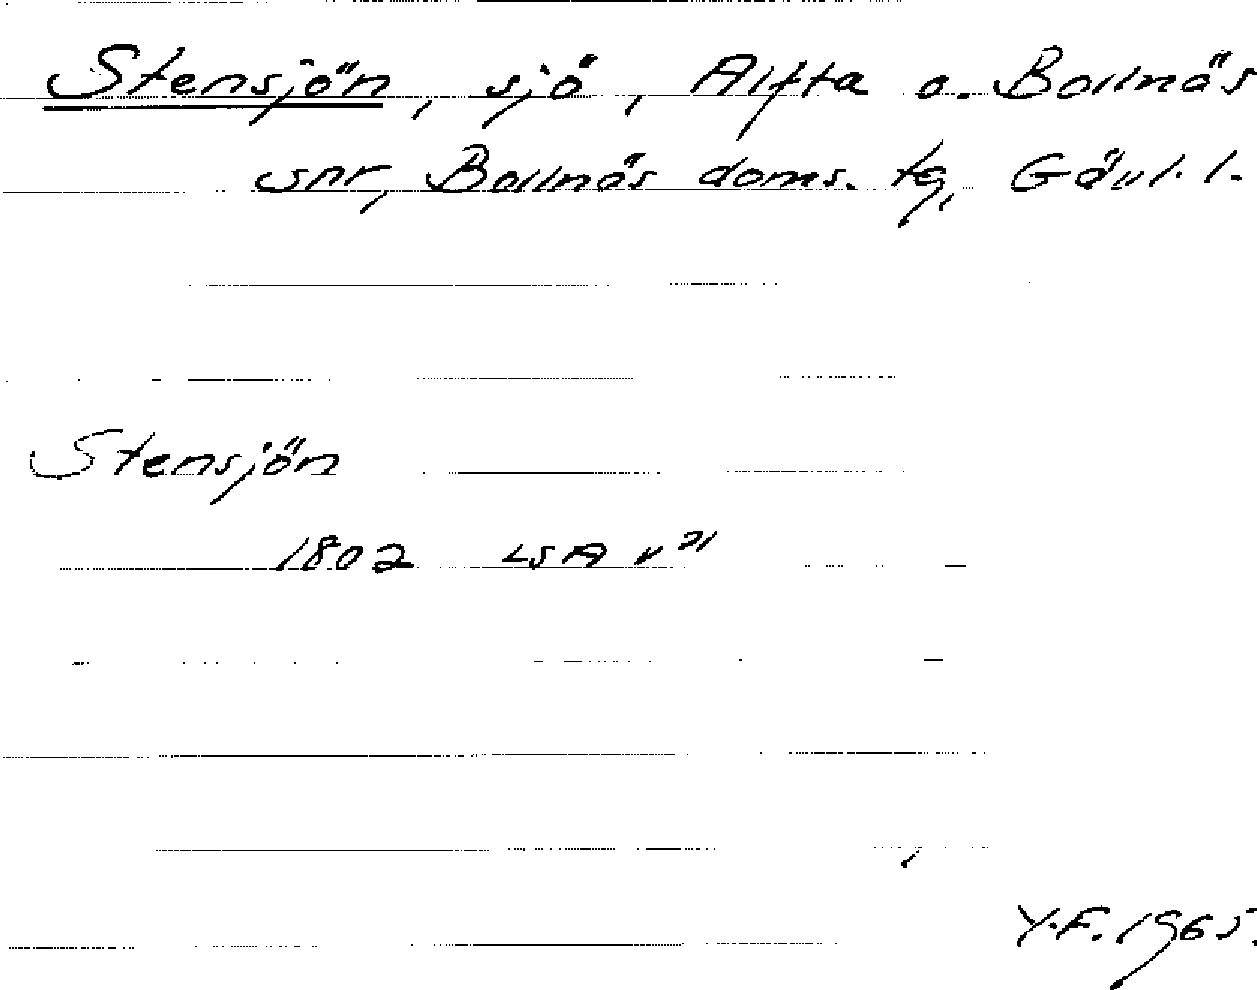 Stensjön, sjö, Alfta o. Bollnäs
snr, Bollnäs doms. tg, Gävl. l.
Stensjön
1802 LSA v 21
Y.F. 1965.